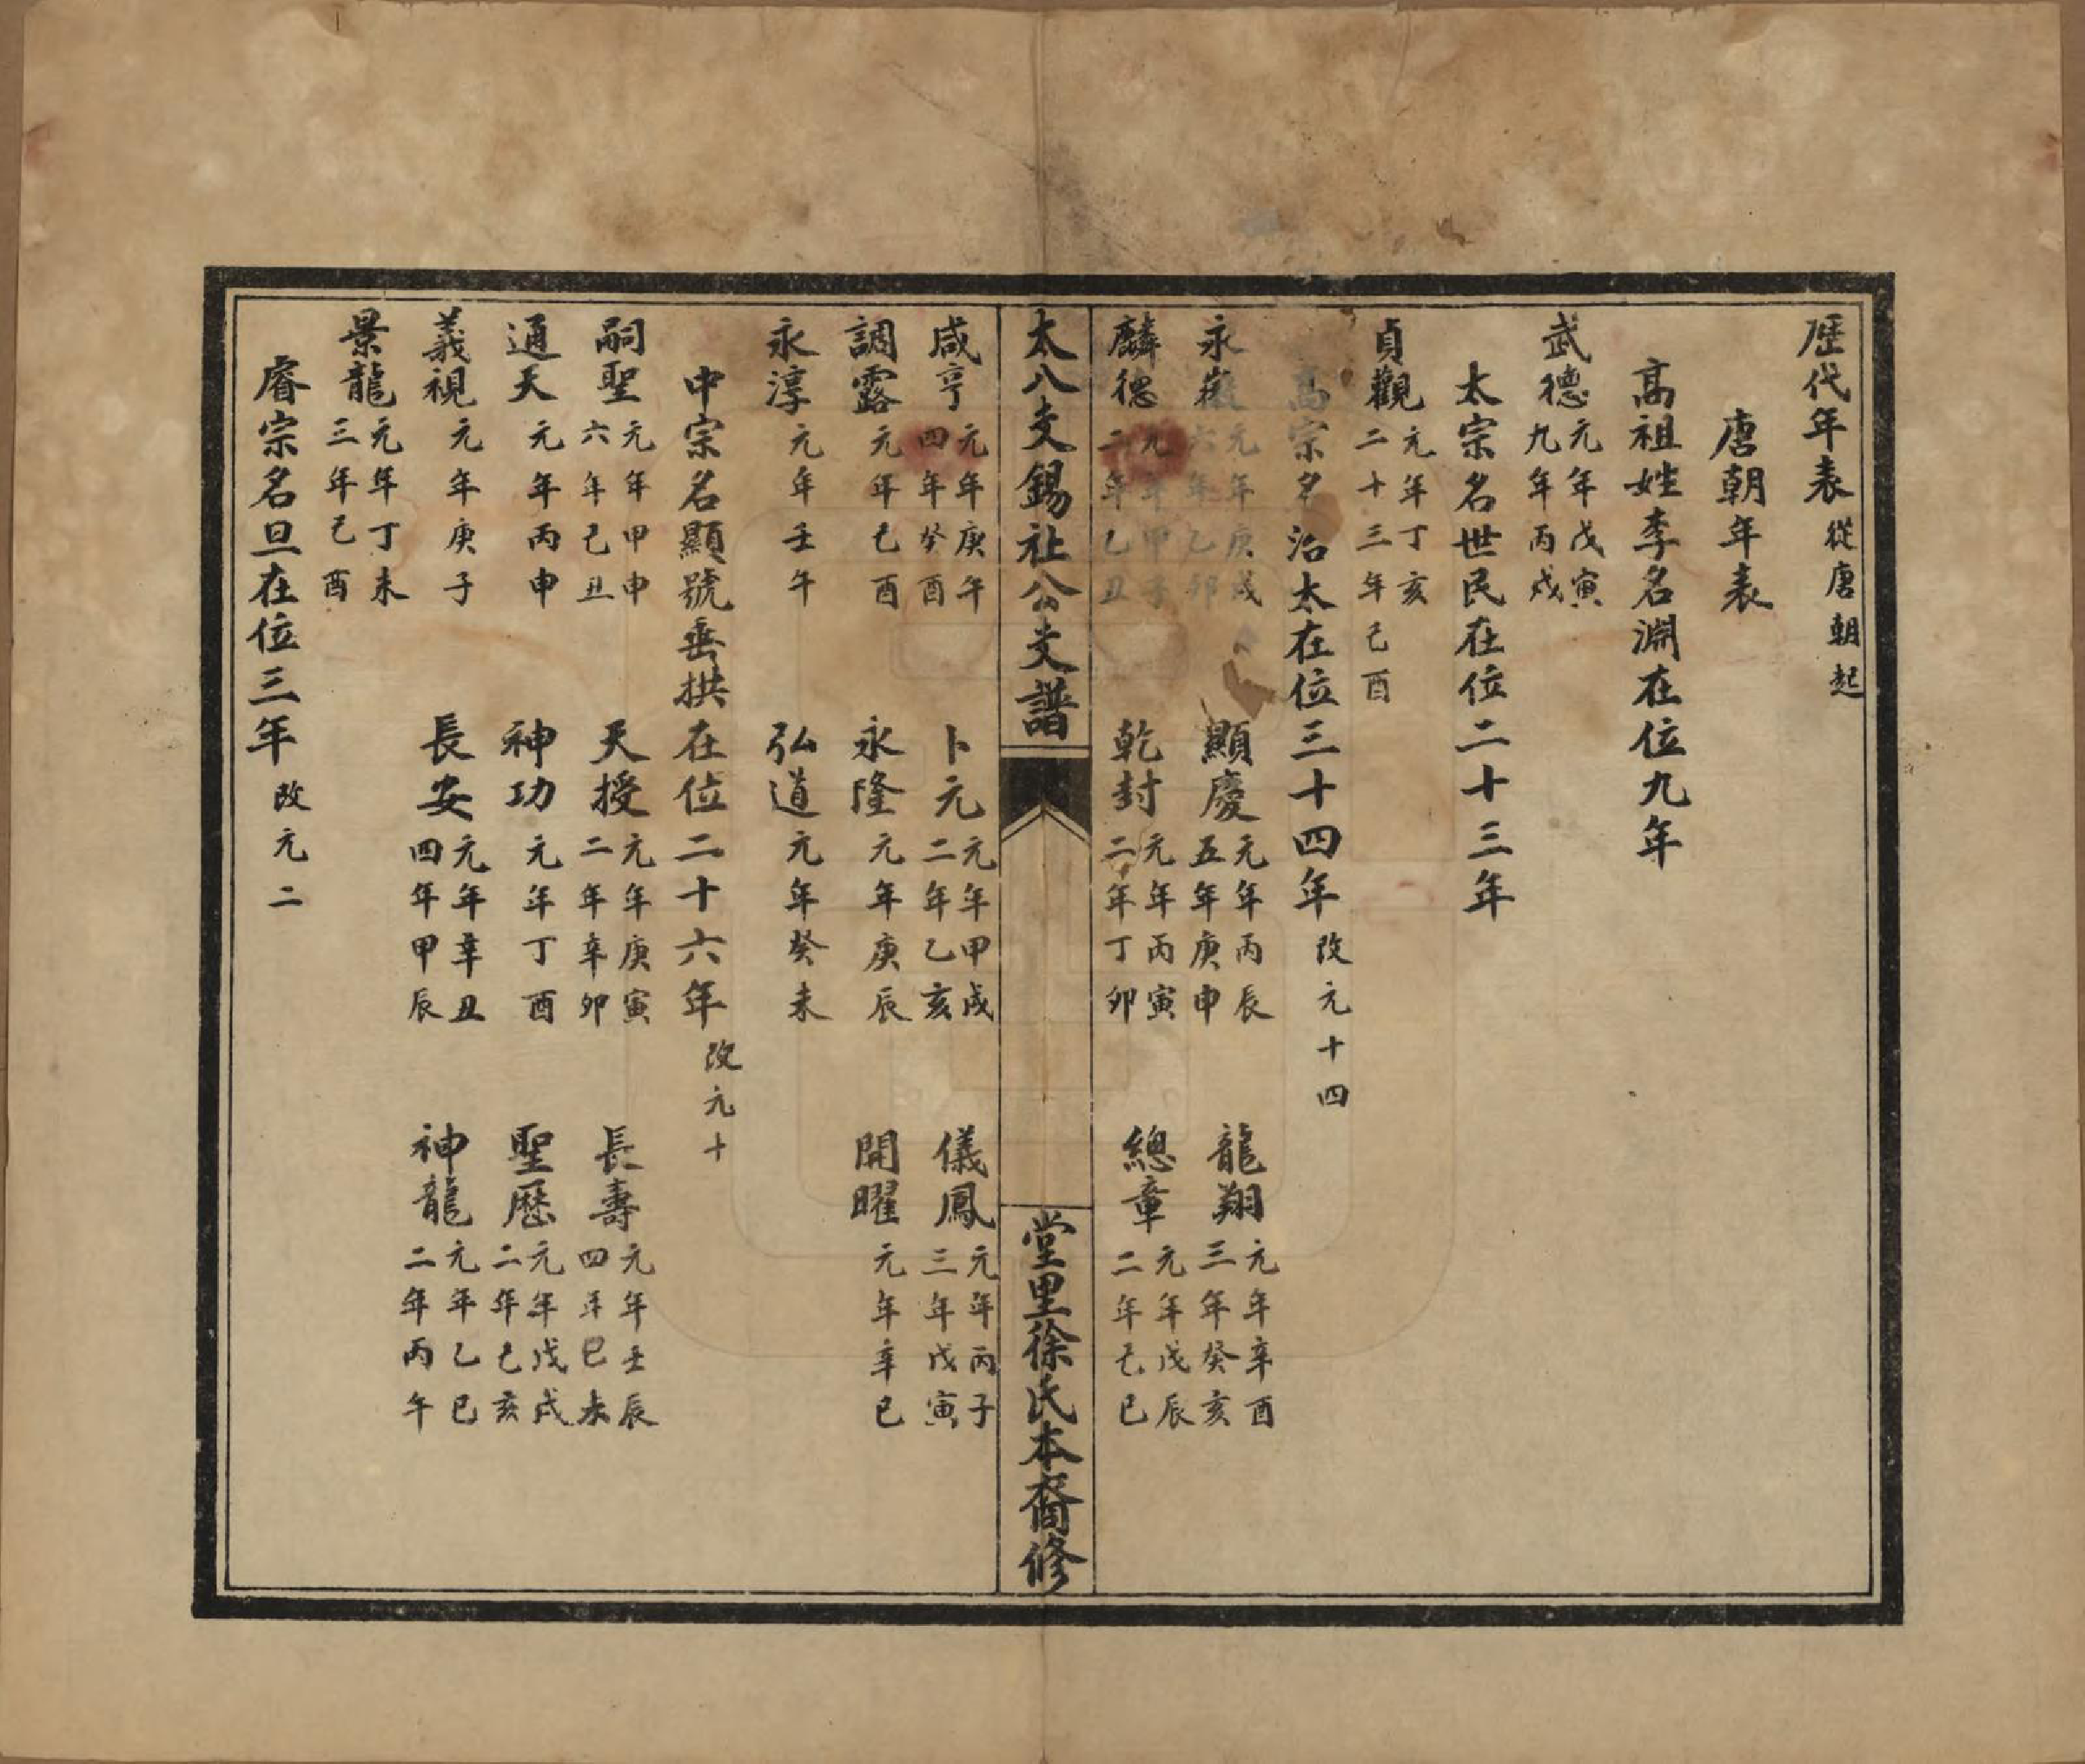 歷代年表 從唐朝起
唐朝年表
高祖姓李名淵在位九年
武德 元年戊寅 九年丙戌
太宗名世民在位二十三年
貞觀 元年丁亥 二十三年己酉
高宗名治太在位三十四年 改元十四
永徽 元年庚戌 六年乙卯 顯慶 元年丙辰 五年庚申 龍翔 元年辛酉 三年癸亥
麟德 元年甲子 二年乙丑 乾封 元年丙寅 二年丁卯 總章 元年戊辰 二年己巳
太八支錫祉公支譜 堂里徐氏本裔修
咸亨 元年庚午 四年癸酉 卜元 元年甲戌 二年乙亥 儀鳳 元年丙子 三年戊寅
調露 元年己酉 永隆 元年庚辰 開曜 元年辛巳
永淳 元年壬午 弘道 元年癸未
中宗名顯號垂拱在位二十六年 改元十
嗣聖 元年甲申 六年己丑 天授 元年庚寅 二年辛卯 長壽 元年壬辰 四年巳未
通天 元年丙申 神功 元年丁酉 聖歷 元年戊戌 二年己亥
義視 元年庚子 長安 元年辛丑 四年甲辰 神龍 元年乙巳 二年丙午
景龍 元年丁未 三年己酉
睿宗名旦在位三年 改元二